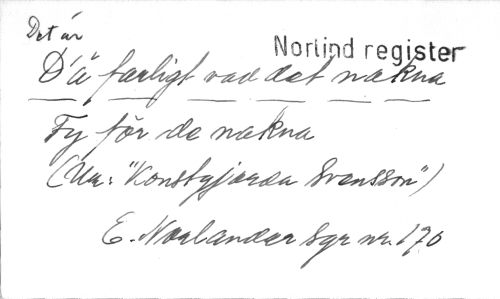 Det är
Norlind register
D'ä farligt vad det nakna
Fy för de nakna
(Ur: "Konstgjorda Svensson")
E. Norlander Sgr nr. 170